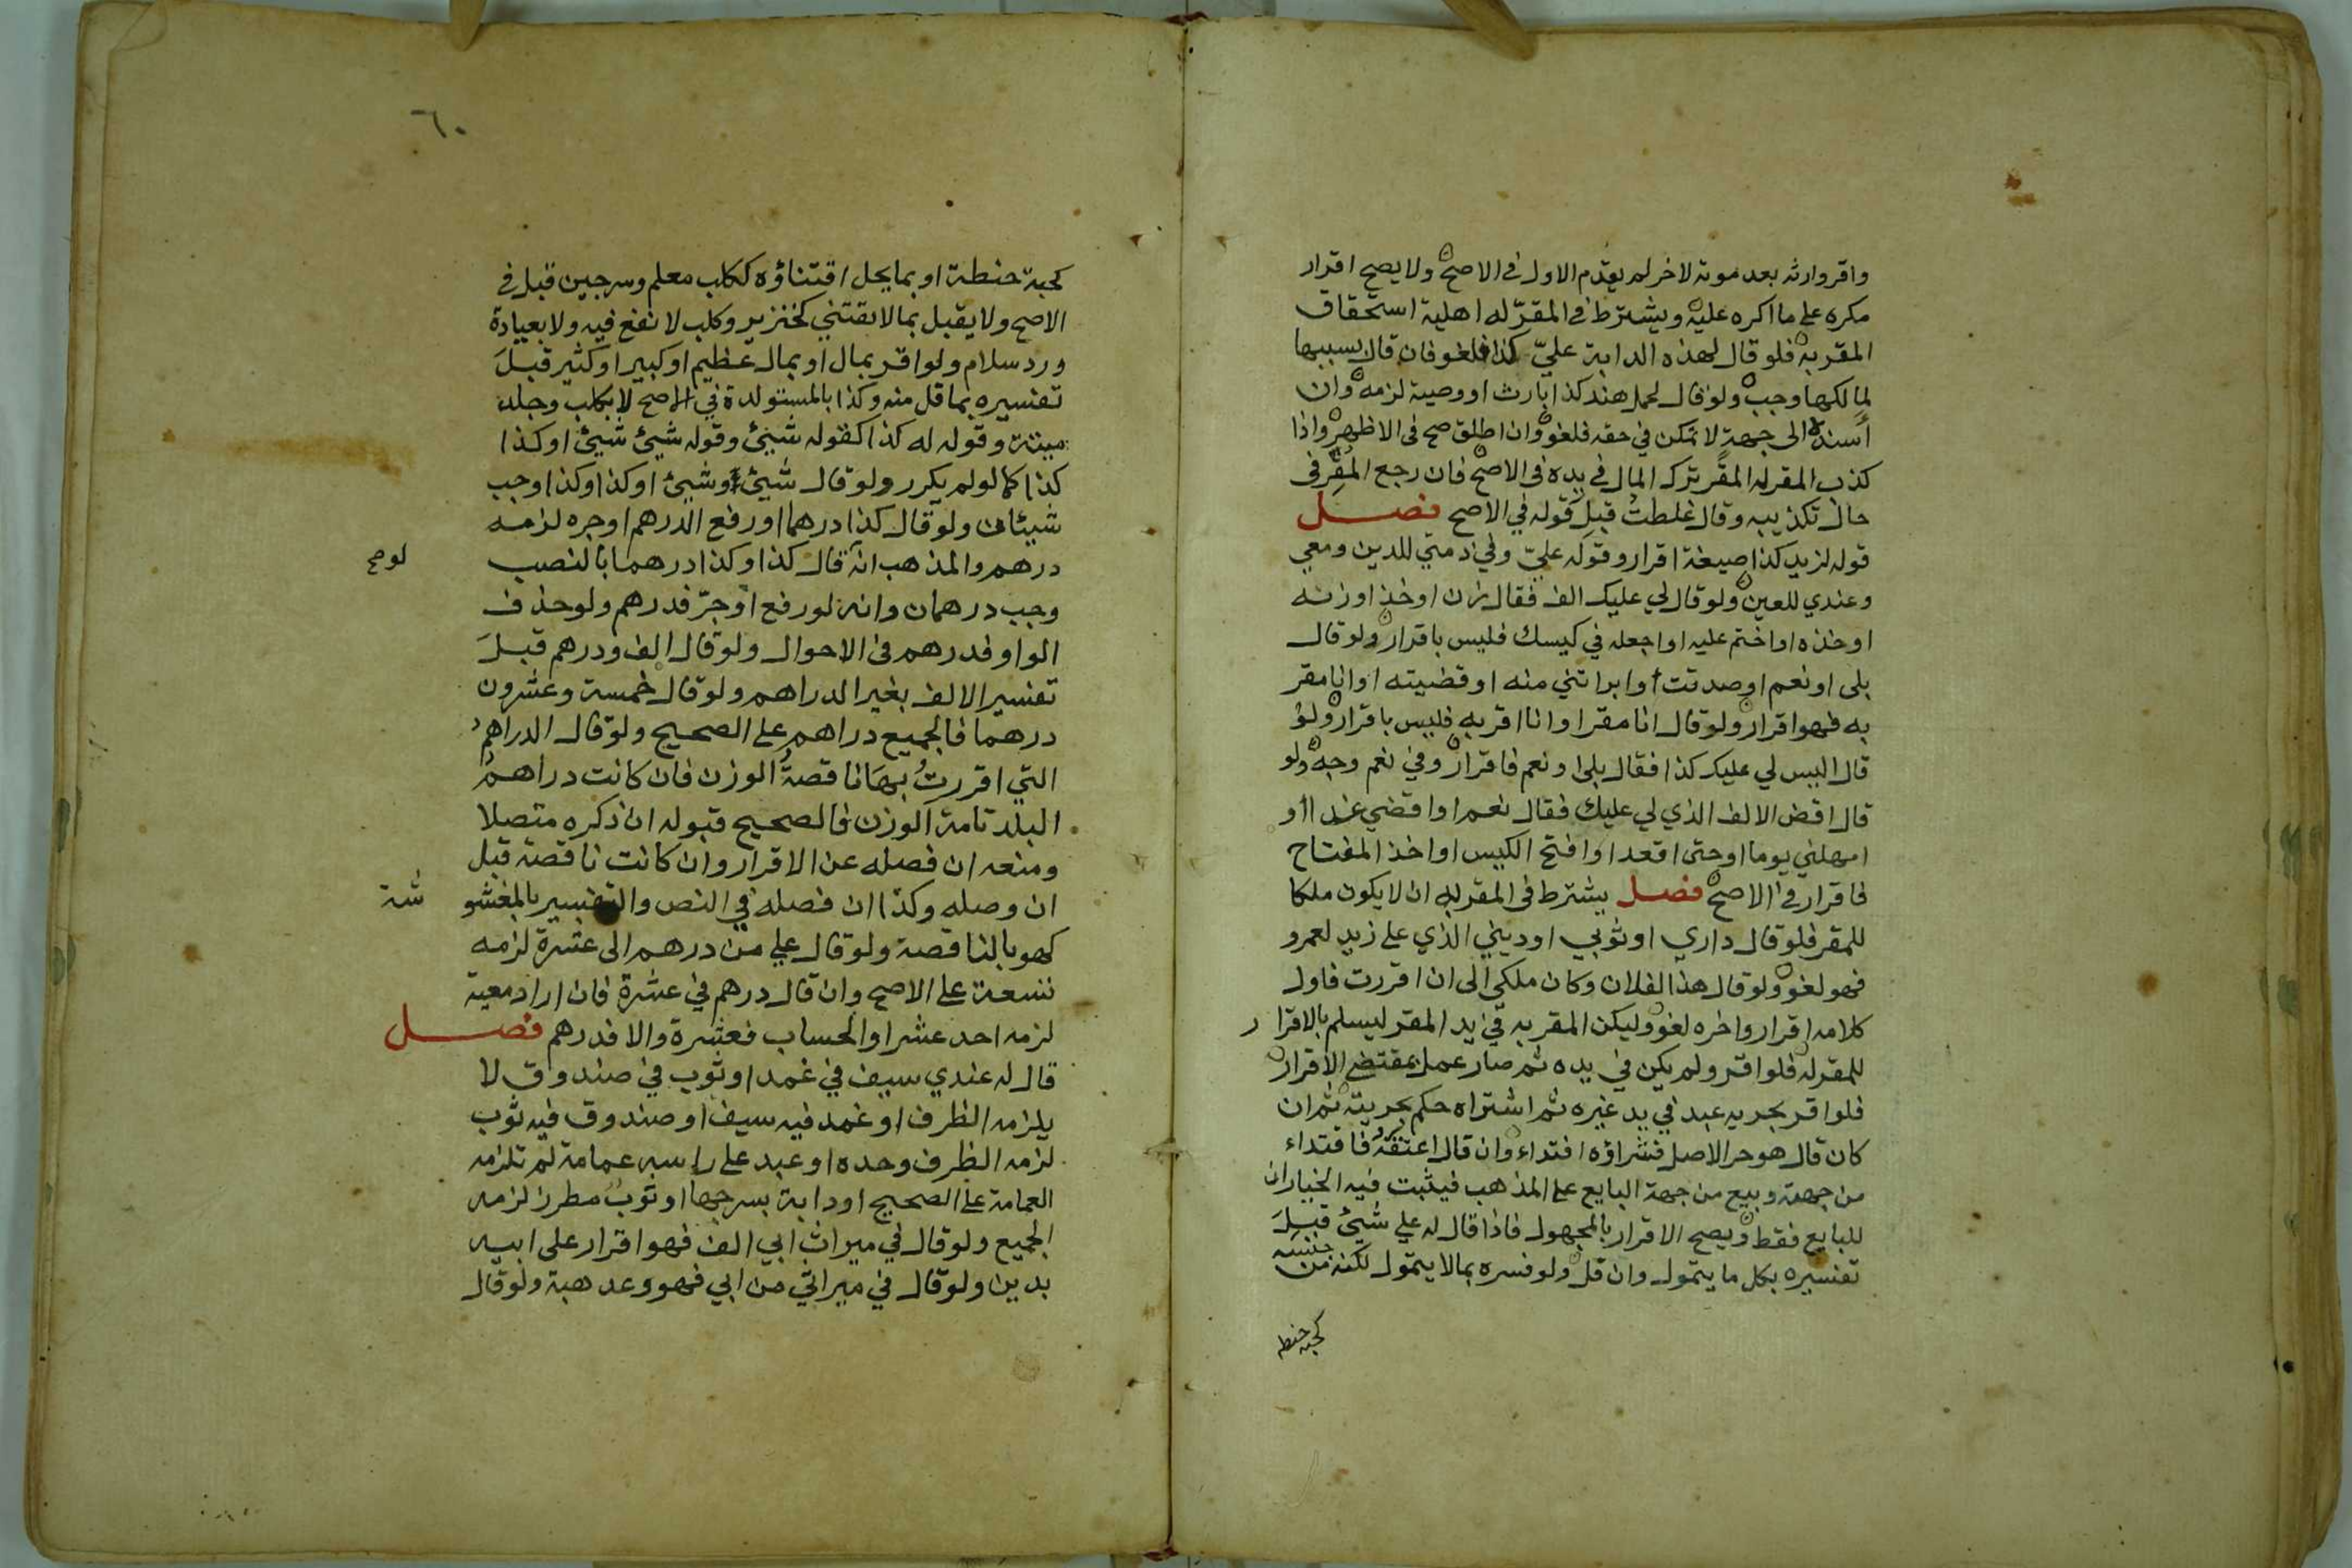 واقر وارثه بعد موته لاخر لم يقدم الاول في الاصح ولا يصح اقرار
مكره على ما اكره عليه ويشترط في المقرّ له اهلية استحقاق
المقر به فلو قال لهذه الدابة عليّ كذا فلغو فان قال بسببها
لمالكها وجب ولو قال لحمل هند كذا بارث او وصية لزمه وان
أسنده الى جهةٍ لا تمكن في حقه فلغو وان اطلق صح في الاظهر واذا
كذب المقر له المقر ترك المال في يده في الاصح فان رجع المُقر في
حال تكذيبه وقال غلطتُ قبل قوله في الاصح فصل
قوله لزيد كذا صيغة اقرار وقوله عليّ وفي ذمتي للدين ومعي
وعندي للعين ولو قال لي عليك الف فقال زن او خذ او زنه
او خذه او اختم عليه او اجعله في كيسك فليس باقرار ولو قال
بلى او نعم او صدقت أو ابراتني منه او قضيته او انا مقر
به فهو اقرار ولو قال انا مقر او انا اقر به فليس باقرار ولو
قال اليس لي عليك كذا فقال بلى او نعم فاقرار وفي نعم وجه ولو
قال اقض الالف الذي لي عليك فقال نعم او اقضي غدا أو
امهلني يوما او حتى اقعد او افتح الكيس او اخذ المفتاح
فاقرار في الاصح فصل يشترط في المقر به ان لا يكون ملكا
للمقر فلو قال داري او ثوبي او ديني الذي على زيد لعمرو
فهو لغو ولو قال هذا لفلان وكان ملكي الى ان اقررت فاول
كلامه اقرار واخره لغو وليكن المقر به في يد المقر ليسلم بالاقرار
للمقر له فلو اقر ولم يكن في يده ثم صار عمل بمقتضى الاقرار
فلو اقر بحريه عبد في يد غيره ثم اشتراه حكم بحريته ثم ان
كان قال هو حر الاصل فشراؤه افتداء وان قال اعتقه فافتداء
من جهته وبيع من جهة البايع على المذهب فيثبت فيه الخياران
للبايع فقط ويصح الاقرار بالمجهول فاذا قال له علي شيئ قبلَ
تفسيره بكل ما يتمول وان قل ولو فسره بما لا يتمول لكنه من جنسه
كحبة حنطه
٦٠
كحبة حنطة او بما يحل اقتناؤه ككلب معلم وسرجين قبل في
الاصح ولا يقبل بما لا يقتني كخنزير وكلب لا نفع فيه ولا بعيادة
ورد سلام ولو اقر بمال او بمال عظيم او كبير او كثير قبلَ
تفسيره بما قل منه وكذا بالمستولدة في الاصح لا بكلب وجلد
ميتة وقوله له كذا كقوله شيئ وقوله شيئ شيئ او كذا
كذا كما لو لم يكرر ولو قال شيئ وشيئ او كذا وكذا وجب
شيئان ولو قال كذا درهما او رفع الدرهم او جره لزمه
درهم والمذهب انه قال كذا وكذا درهما بالنصب
لو صح
وجب درهمان وانه لو رفع او جرّ فدرهم ولو حذف
الواو فدرهم في الاحوال ولو قال الف ودرهم قبلَ
تفسير الالف بغير الدراهم ولو قال خمسة وعشرون
درهما فالجميع دراهم على الصحيح ولو قال الدراهم
التي اقررتُ بها ناقصةُ الوزن فان كانت دراهمُ
البلد تامة الوزن فالصحيح قبوله ان ذكره متصلا
ومنعه ان فصله عن الاقرار وان كانت ناقصة قبل
ان وصله وكذا ان فصله في النص والتفسير بالمغشو
شة
كهو بالناقصة ولو قال علي من درهم الى عشرة لزمه
تسعة على الاصح وان قال درهم في عشرة فان اراد معية
لزمه احد عشر او الحساب فعشرة والا فدرهم فصل
قال له عندي سيف في غمد او ثوب في صندوق لا
يلزمه الظرف او غمد فيه سيف او صندوق فيه ثوب
لزمه الظرف وحده او عبد على راسه عمامة لم تلزمه
العمامة على الصحيح او دابة بسرجها او ثوبُ مطرز لزمه
الجميع ولو قال في ميراث ابي الف فهو اقرار على ابيه
بدين ولو قال في ميراثي من ابي فهو وعد هبة ولو قال